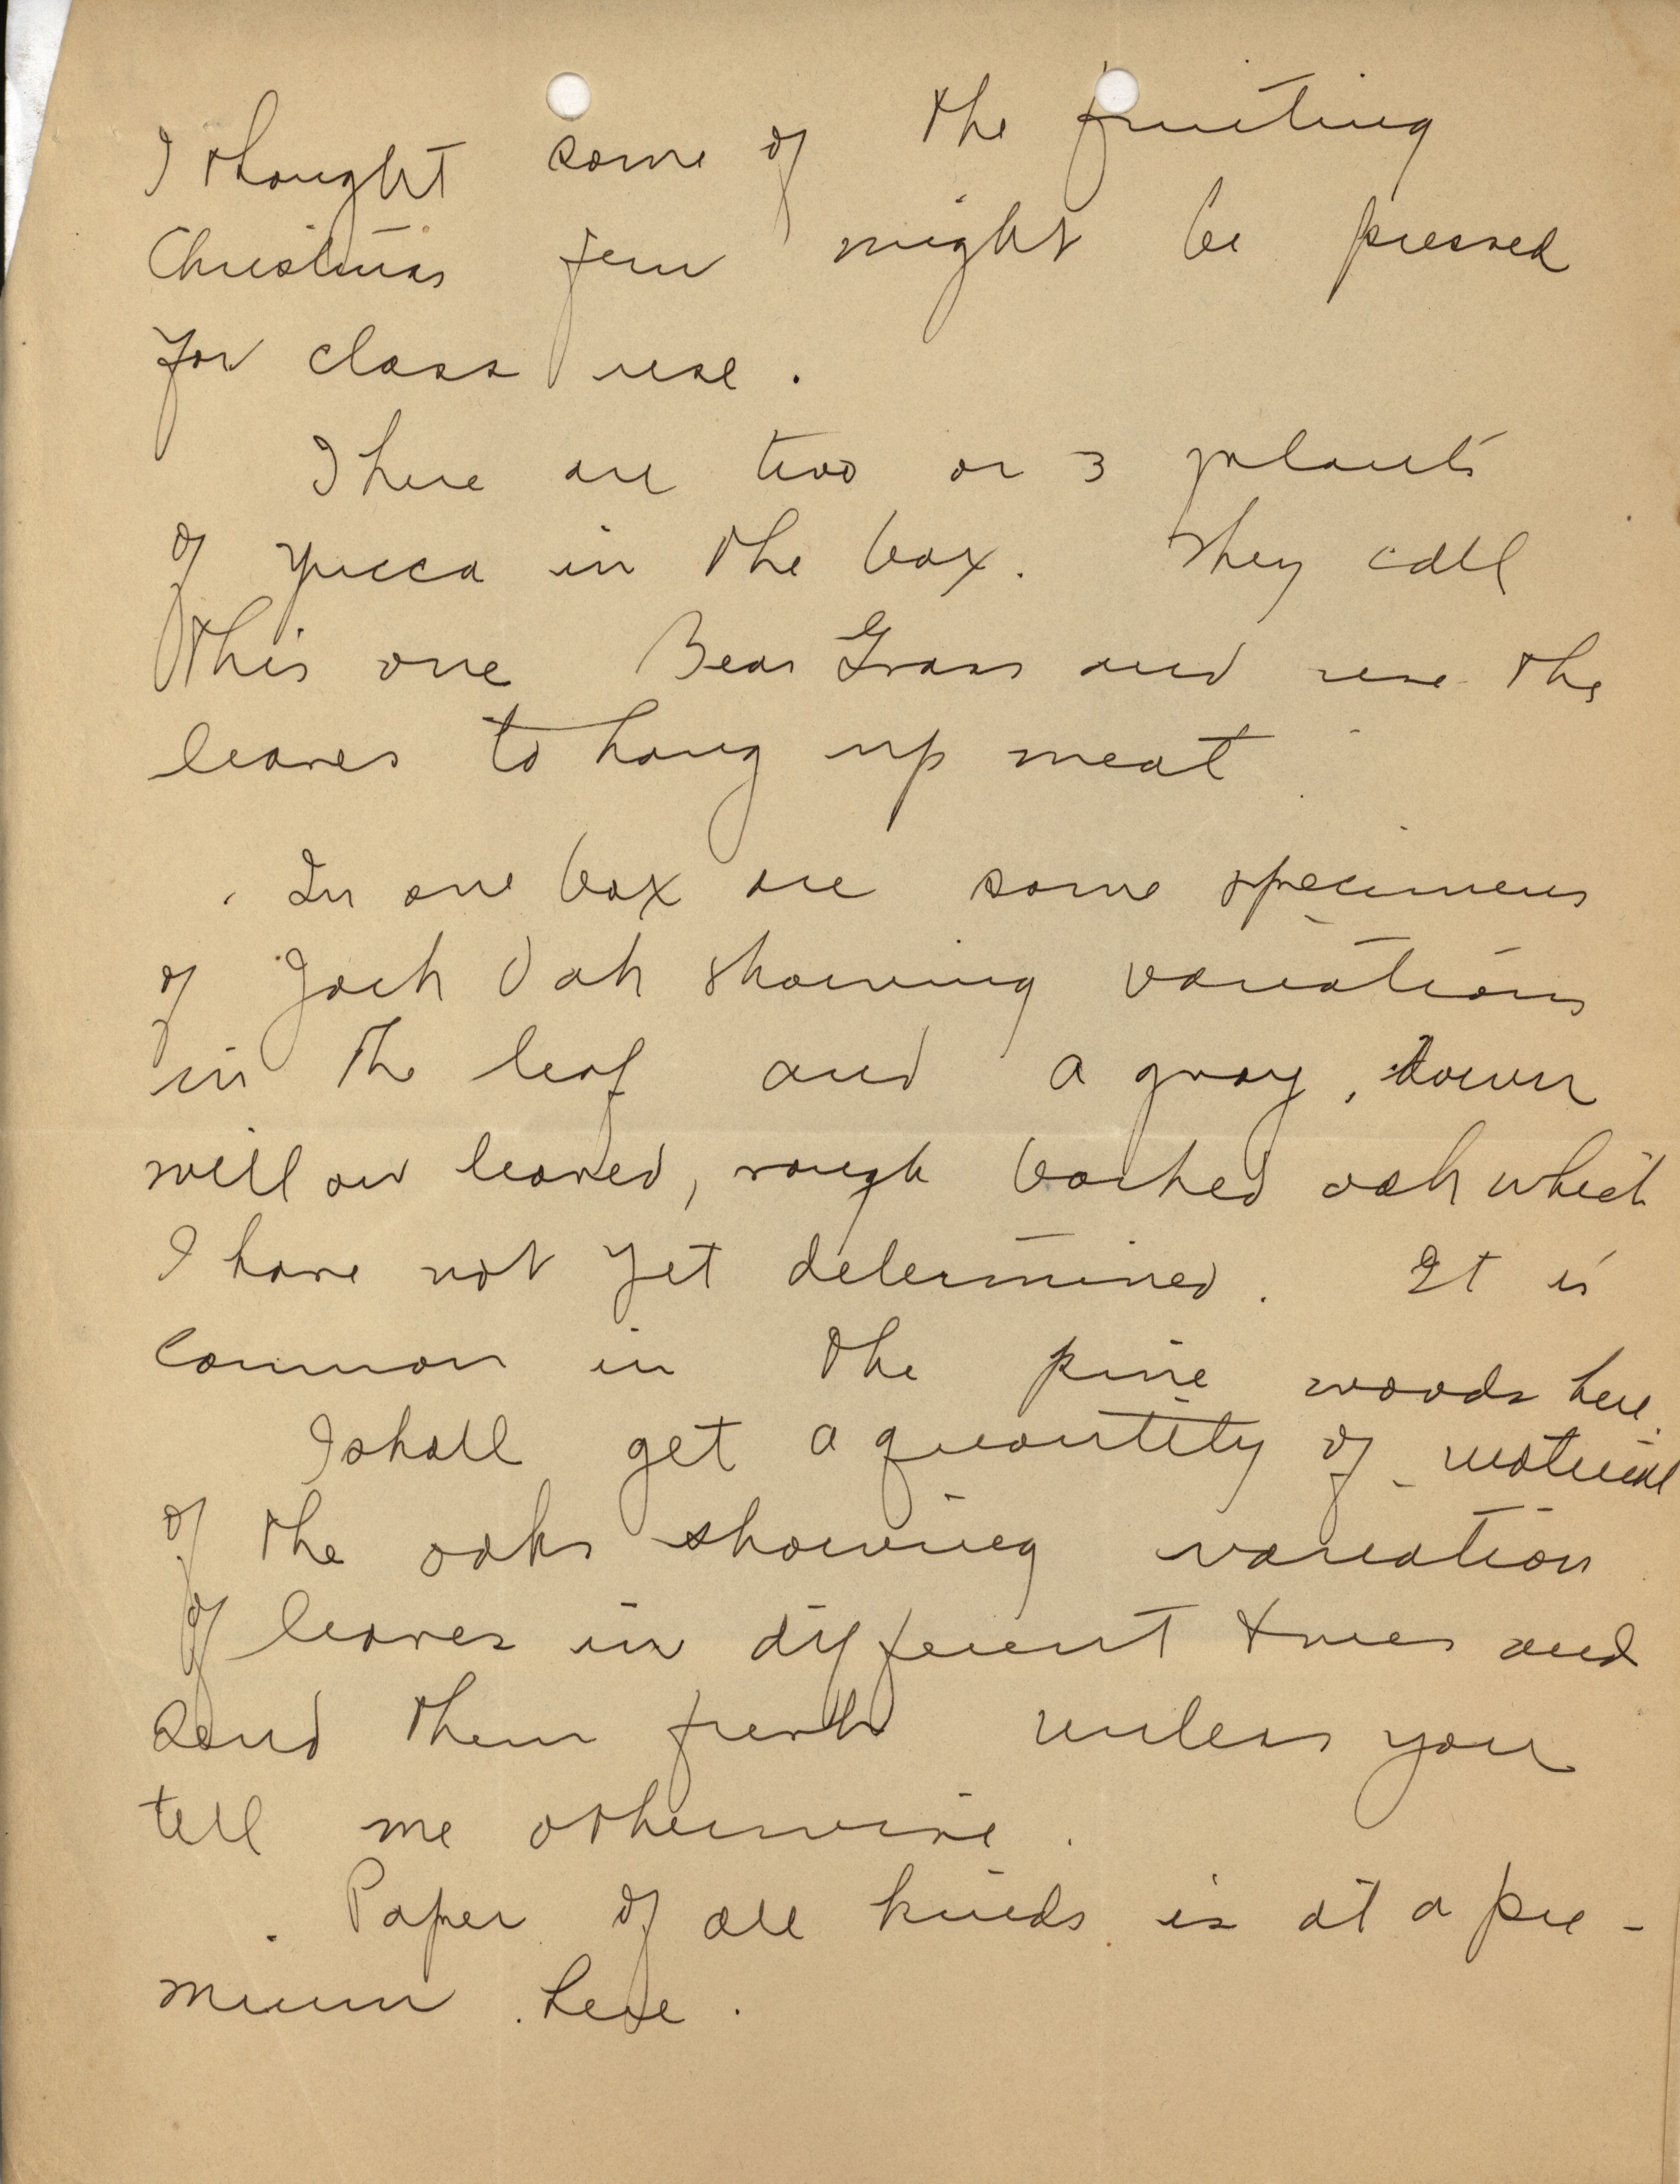 I thought some of the fruiting
Christmas fern might be pressed
for class use.
There are two or 3 plants
of yucca in the box. They call
this one Bear Grass and use the
leaves to hang up meat
In one box are some specimens
of Jack Oak showing variations
in the leaf and a gray, down
willow leaved, rough barked oak which
I have not yet determined. It is
common in the pine woods here.
I shall get a quantity of material
of the oaks showing variation
of leaves in different trees and
send them fresh unless you
tell me otherwise.
Paper of all kinds is at a pre-
mium here.